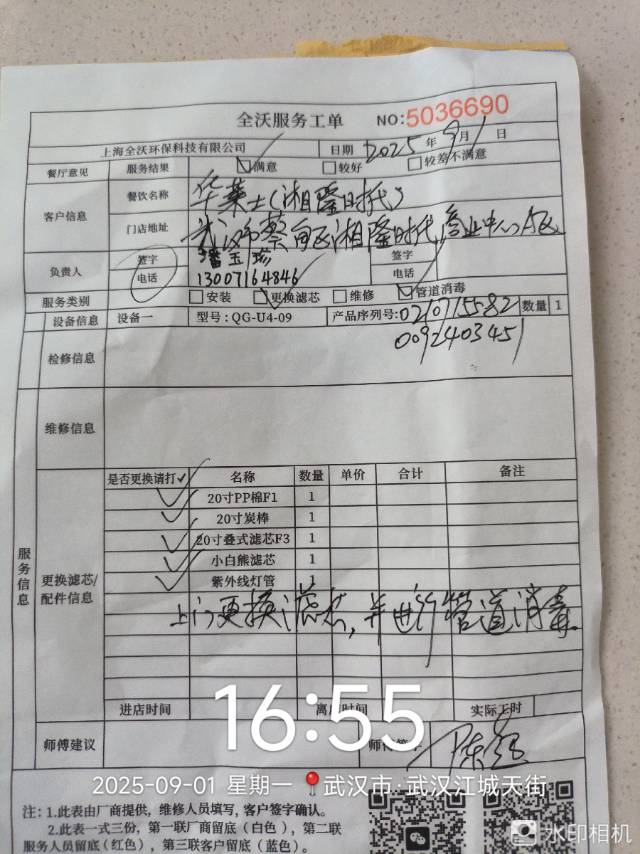 全沃服务工单 NO:5036690
上海全沃环保科技有限公司 日期 2025年9月1日
餐厅意见 服务结果 ☑满意 □较好 □较差不满意
客户信息 餐饮名称 华莱士(湘隆时代)
门店地址 武汉市蔡甸区湘隆时代商业中心A区
负责人 签字 潘玉 签字
电话 13007164846 电话
服务类别 □安装 ☑更换滤芯 □维修 ☑管道消毒
设备信息 设备一 型号:QG-U4-09 产品序列号:0210715582 数量 1
0092403451
检修信息
维修信息
服务信息
更换滤芯/配件信息
是否更换请打✓ 名称 数量 单价 合计 备注
✓ 20寸PP棉F1 1
✓ 20寸炭棒 1
✓ 20寸叠式滤芯F3 1
✓ 小白熊滤芯 1
✓ 紫外线灯管 1
上门更换滤芯,并进行管道消毒
进店时间 离店时间 实际工时
16:55
师傅建议 师傅签字 陈
2025-09-01 星期一 武汉市·武汉江城天街
注:1.此表由厂商提供,维修人员填写,客户签字确认。
2.此表一式三份,第一联厂商留底(白色),第二联
服务人员留底(红色),第三联客户留底(蓝色)。
水印相机